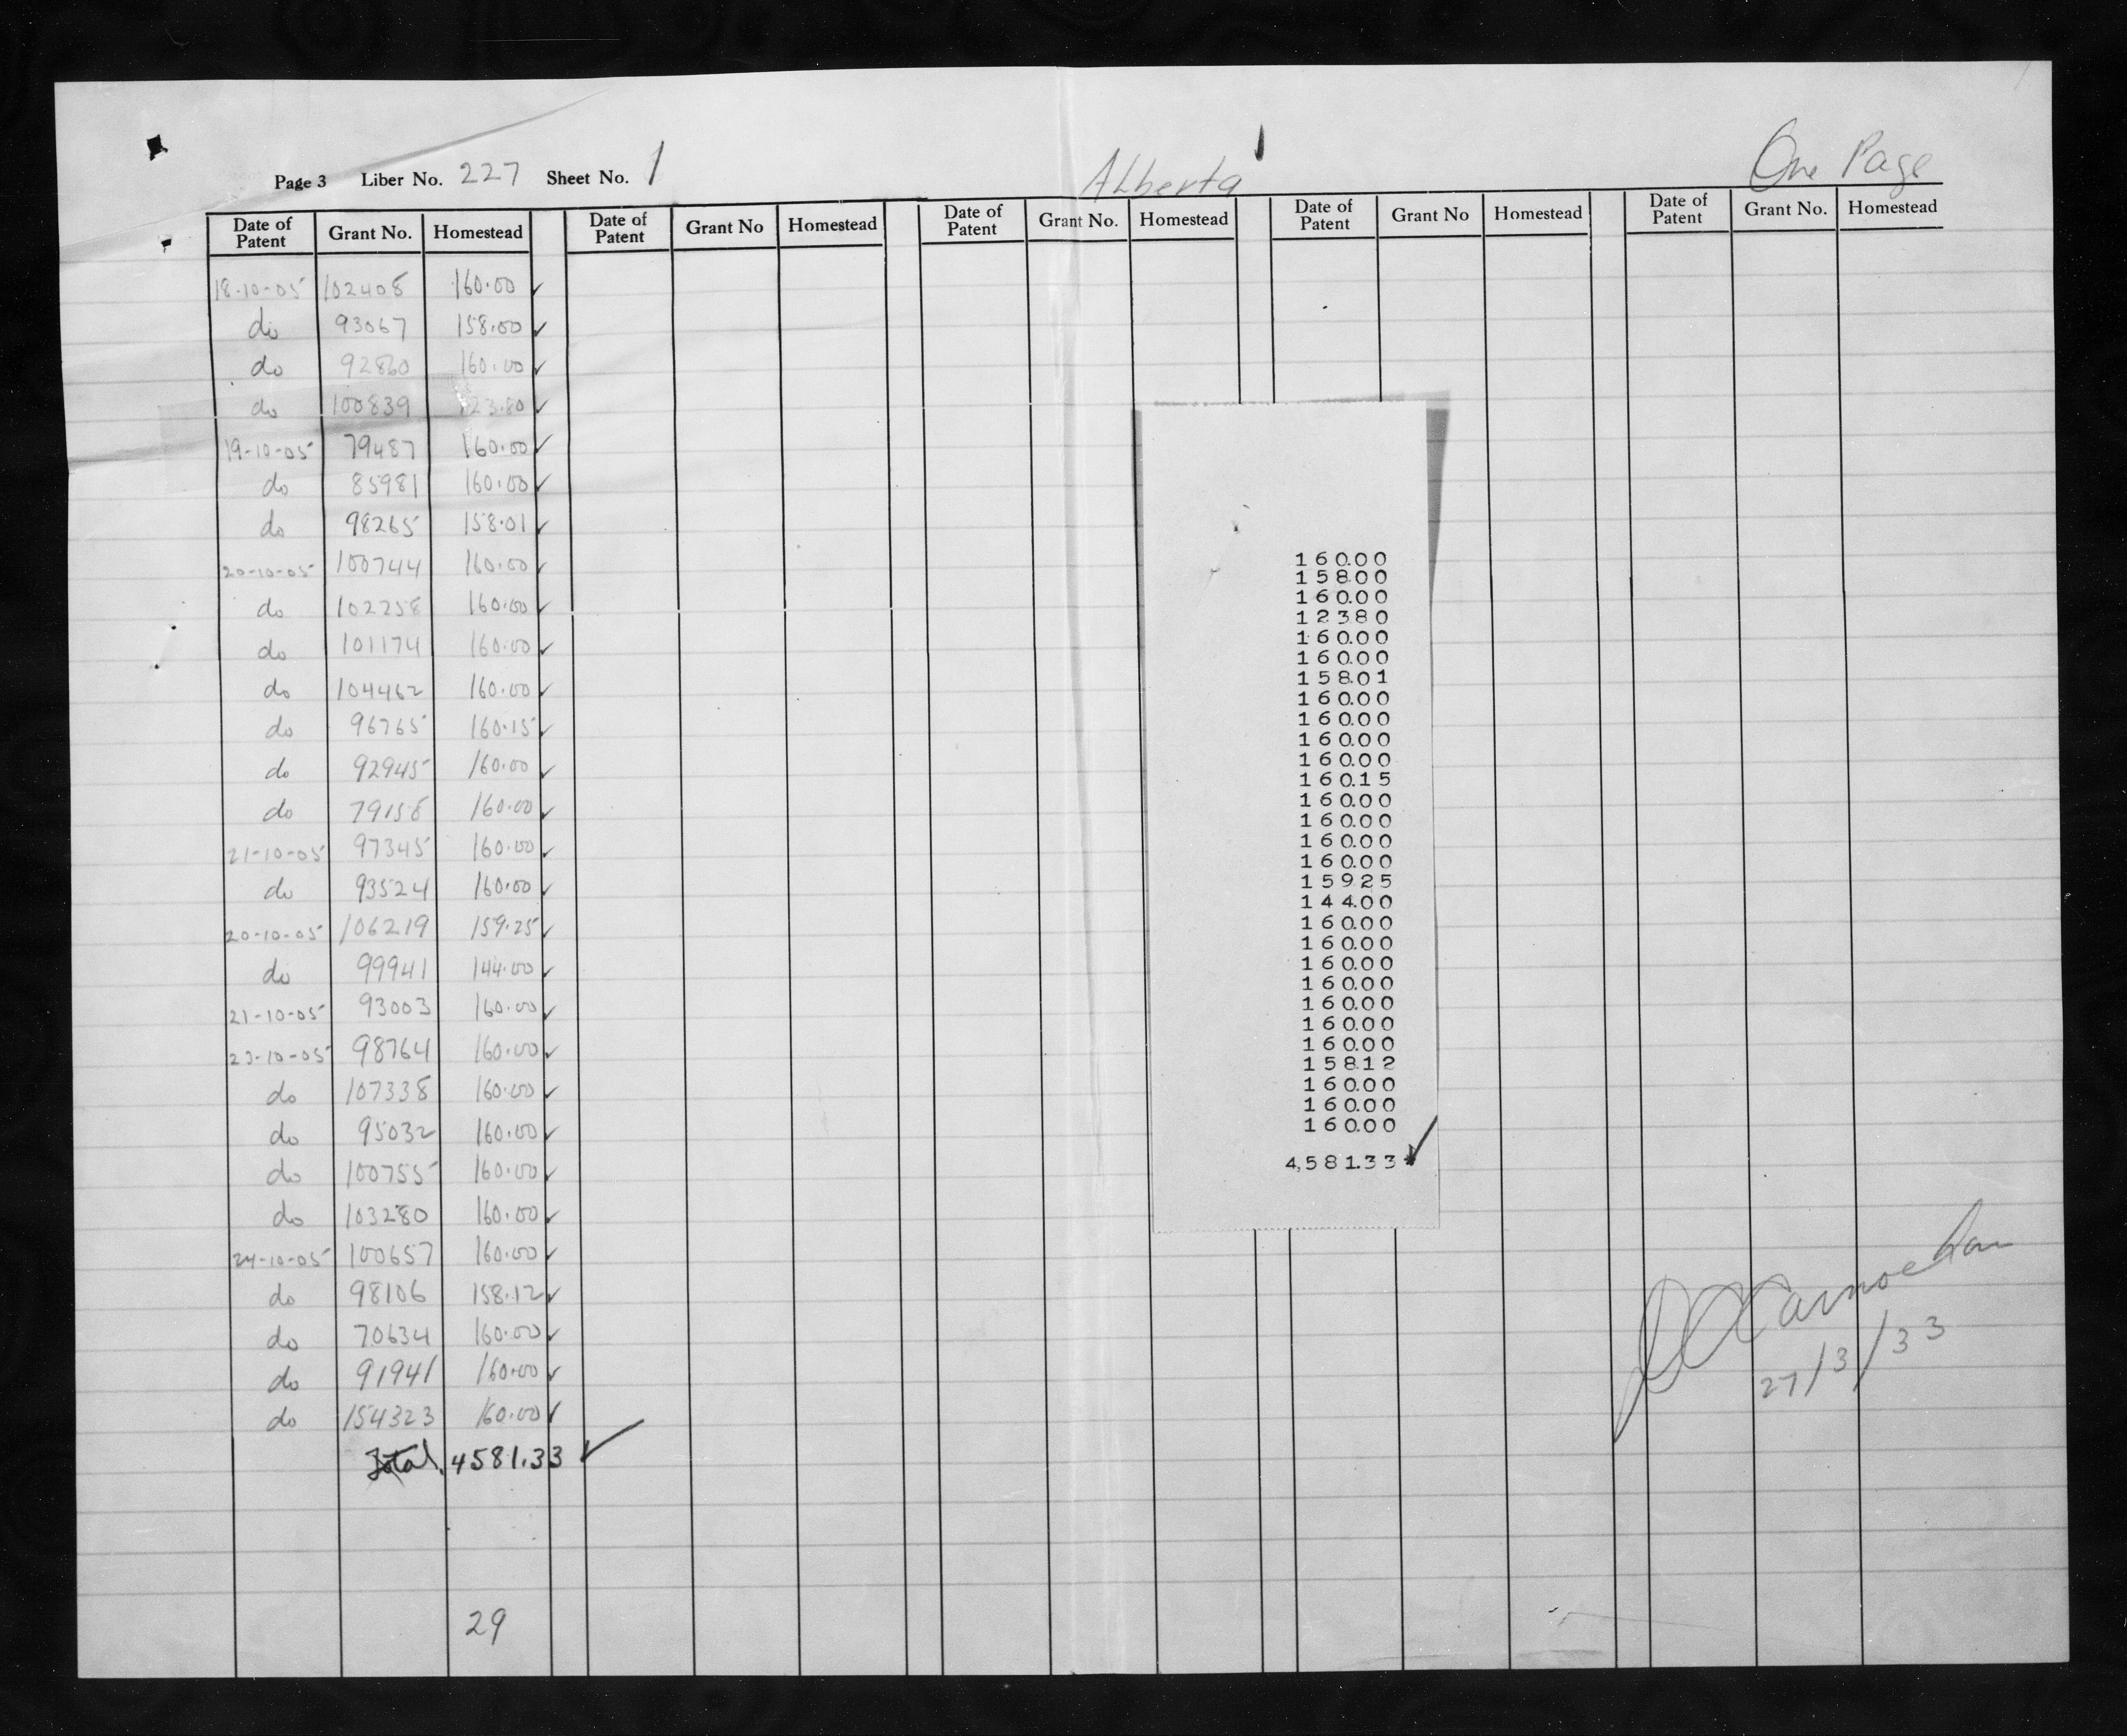 Alberta One Page
Page 3 Liber No. 227 Sheet No. 1
Date of Patent Grant No. Homestead Date of Patent Grant No Homestead Date of Patent Grant No. Homestead Date of Patent Grant No Homestead Date of Patent Grant No. Homestead
18-10-05 102408 160.00 ✓
do 93067 158.00 ✓
do 92860 160.00 ✓
do 100839 123.80 ✓
19-10-05 79487 160.00 ✓
do 85981 160.00 ✓
do 98265 158.01 ✓
20-10-05 100744 160.00 ✓
do 102258 160.00 ✓
do 101174 160.00 ✓
do 104462 160.00 ✓
do 96765 160.15 ✓
do 92945 160.00 ✓
do 79158 160.00 ✓
21-10-05 97345 160.00 ✓
do 93524 160.00 ✓
20-10-05 106219 159.25 ✓
do 99941 144.00 ✓
21-10-05 93003 160.00 ✓
23-10-05 98764 160.00 ✓
do 107338 160.00 ✓
do 95032 160.00 ✓
do 100755 160.00 ✓
do 103280 160.00 ✓
24-10-05 100657 160.00 ✓
do 98106 158.12 ✓
do 70634 160.00 ✓
do 91941 160.00 ✓
do 154323 160.00 ✓
Total 4581.33 ✓
29
160.00
158.00
160.00
123.80
160.00
160.00
158.01
160.00
160.00
160.00
160.00
160.15
160.00
160.00
160.00
160.00
159.25
144.00
160.00
160.00
160.00
160.00
160.00
160.00
160.00
158.12
160.00
160.00
160.00
4,581.33 ✓
Carnochan
27/3/33